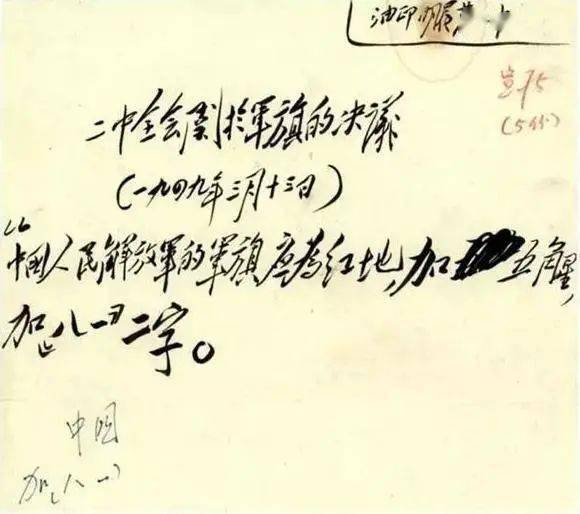 油印
宣75
(5份)
二中全会关於军旗的决议
(一九四九年三月十三日)
“中国人民解放军的军旗应为红地,加五角星,
加“八一”二字。
中国
加“八一”